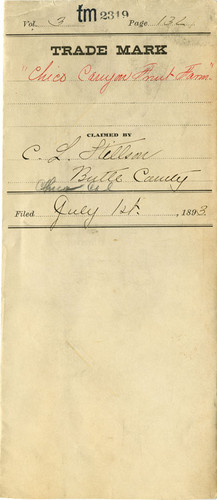 tm 2319
Vol. 3 Page 132
TRADE MARK
"Chico Canyon Fruit Farm"
CLAIMED BY
C. L. Stilson
Butte County
Chico Cal
Filed July 1st, 1893